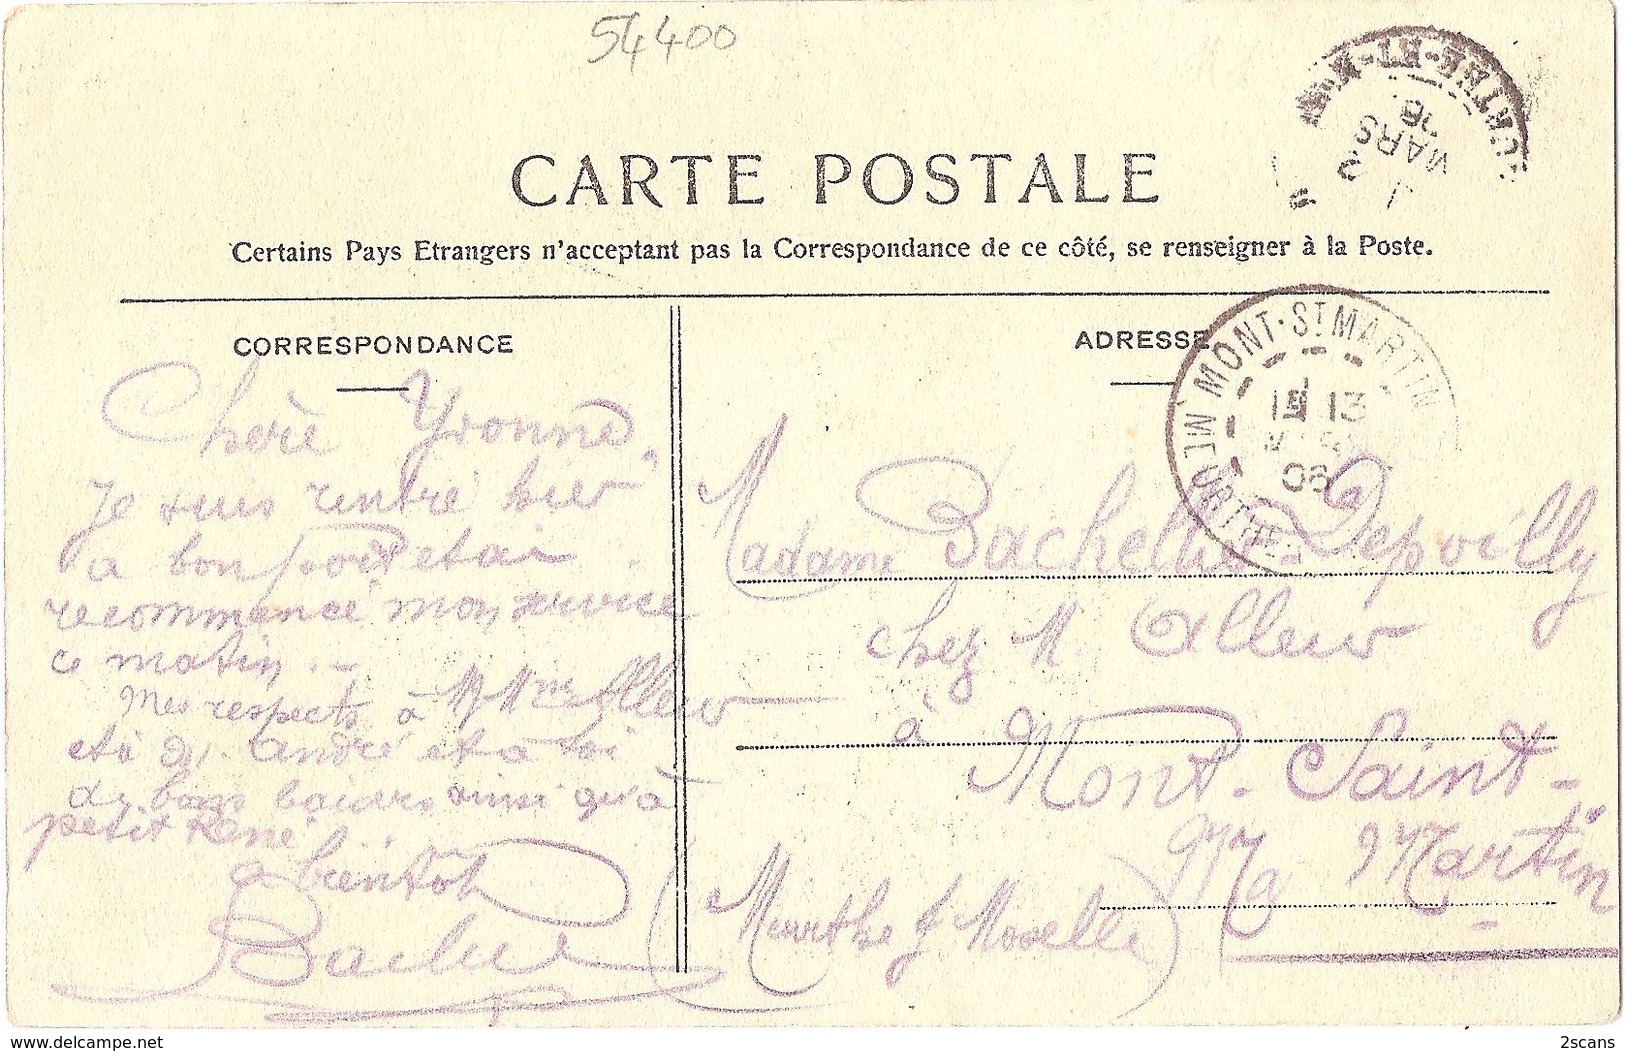 54400
CARTE POSTALE
Certains Pays Etrangers n'acceptant pas la Correspondance de ce côté, se renseigner à la Poste.
CORRESPONDANCE
Chère Yvonne
Je suis rentré hier
a bon port et ai
recommencé mon service
ce matin.
Mes respects à M Mme Alleur
et à André et à toi
de bons baisers ainsi qu'à
petit René
a bientôt
ADRESSE
Madame Bachellier-Depoilly
chez M. Alleur
à
Mont-Saint-
Martin
(Meurthe & Moselle)
MONT-ST MARTIN
13
06
MEURTHE
MARS
06
delcampe.net
2scans